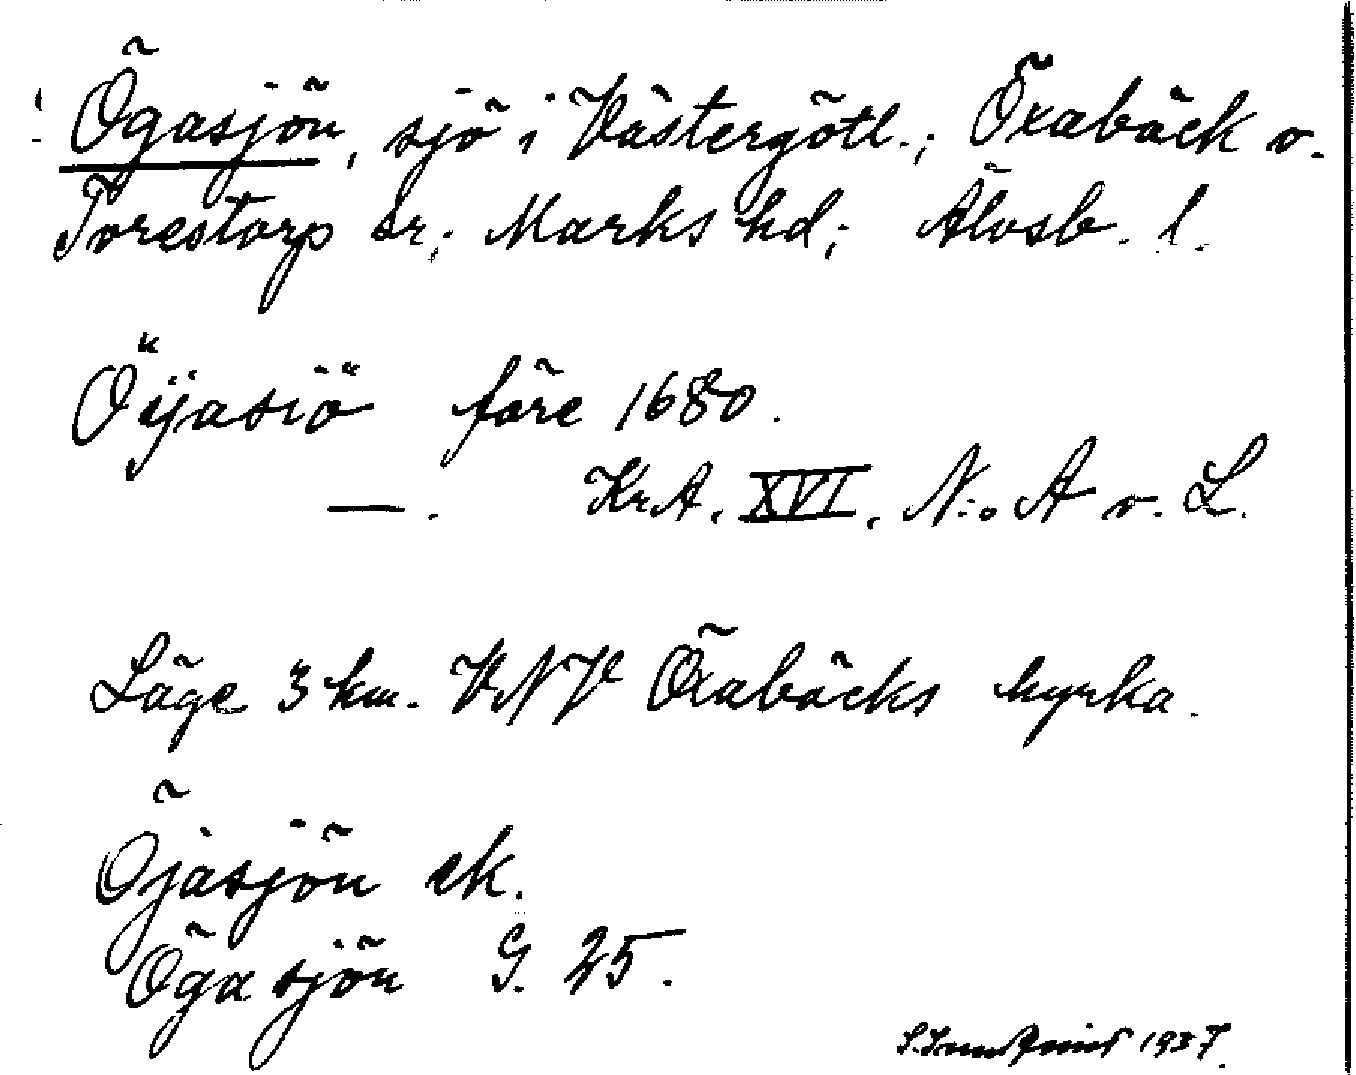 Ögasjön, sjö i Västergötl.; Öxabäck o.
Torestorp sr; Marks hd; Älvsb. l.
Öijasiö före 1680.
—. KrA. XVI. N:o A o. L.
Läge 3 km. VNV Öxabäcks kyrka.
Öjasjön ek.
Ögasjön G. 25.
1937.